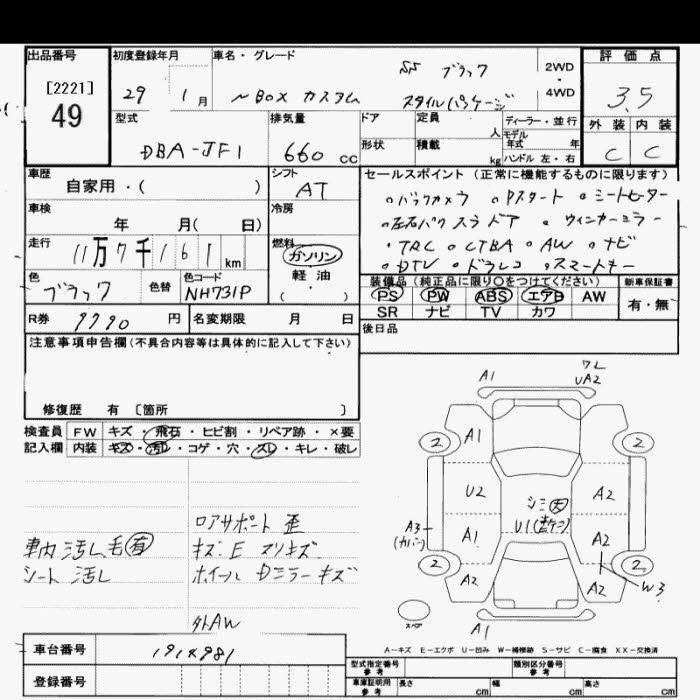 出品番号
[2221]
49
初度登録年月
29 1 月
車名・グレード
N BOX カスタム SS ブラック
スタイルパッケージ
2WD
・
4WD
評価点
3.5
外装 内装
C C
型式
DBA-JF1
排気量
660 cc
ドア
形状
定員
人
積載
kg
ディーラー・並行
モデル
年式 年
ハンドル 左・右
車歴
自家用・( )
シフト
AT
車検
年 月( 日)
冷房
走行
11万7千161 km
燃料
ガソリン
軽・油
( ・ )
色
ブラック
色替
色コード
NH731P
R券 9990 円
名変期限 月 日
セールスポイント(正常に機能するものに限ります)
○バックカメラ ○Pスタート ○シートヒーター
○左右パワスラドア ○ウィンカーミラー
・TRC ○CTBA ○AW ○ナビ
○DTV ○ドラレコ ○スマートキー
装備品(純正品に限り○をつけてください)
PS PW ABS エアB AW
SR ナビ TV カワ
新車保証書
有・無
後日品
注意事項申告欄(不具合内容等は具体的に記入して下さい)
修復歴 有 〔箇所 〕
検査員 FW キズ・飛石・ヒビ割・リペア跡・×要
記入欄 内装 キズ・汚レ・コゲ・穴・スレ・キレ・破レ
ロアサポート 歪
車内 汚レ 毛有
キズ・E スリキズ
シート 汚レ
ホイール Dミラーキズ
外AW
A1
ワレ
UA2
2
A1
2
U2
シミ大
A2
U1
A3
(カバー)
A1
A2
2
A2
A2
2
W3
スペア
A1
A-キズ E-エクボ U-凹み W-補修跡 S-サビ C-腐食 XX-交換済
車台番号 1914981
登録番号
型式指定番号
参考
類別区分番号
参考
車庫証明用
参考
長さ cm
幅 cm
高さ cm